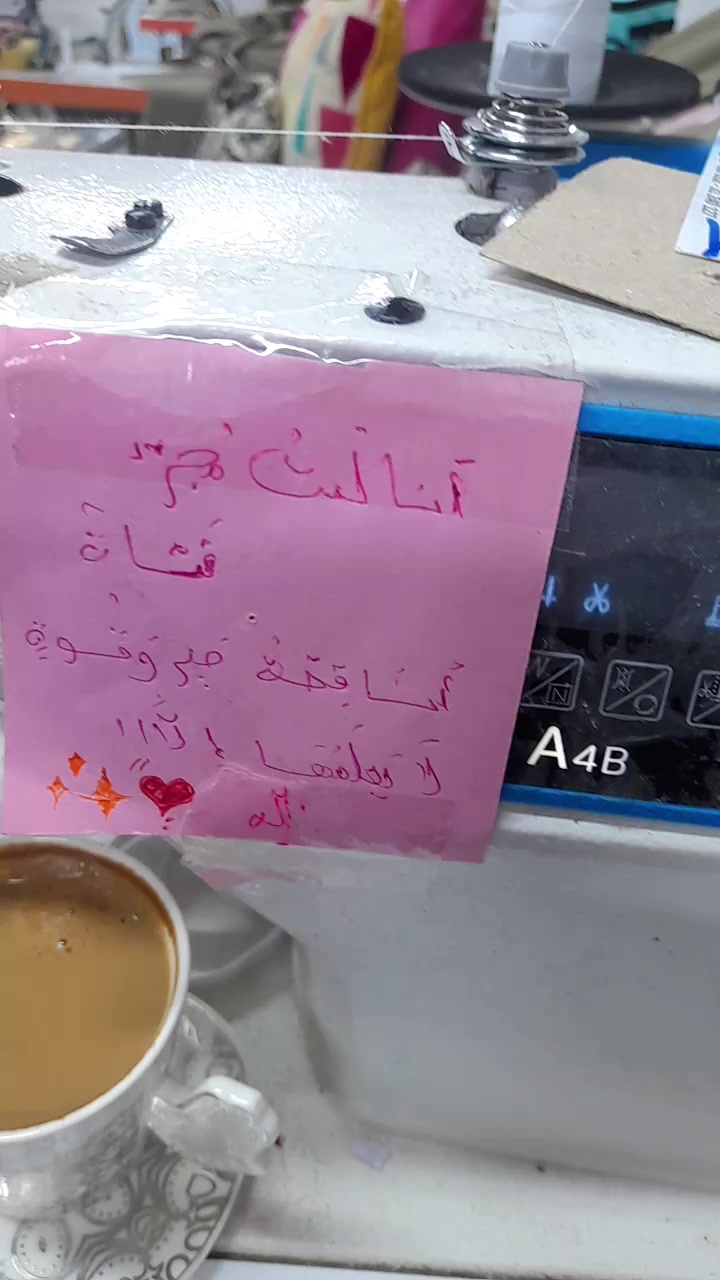 أنا لستُ مُجرّد
فَتاةً
أنَا قِصّةُ صبرٍ وَقُوةٍ
لَا يَعلَمُهَا إلَّا
الله
A4B